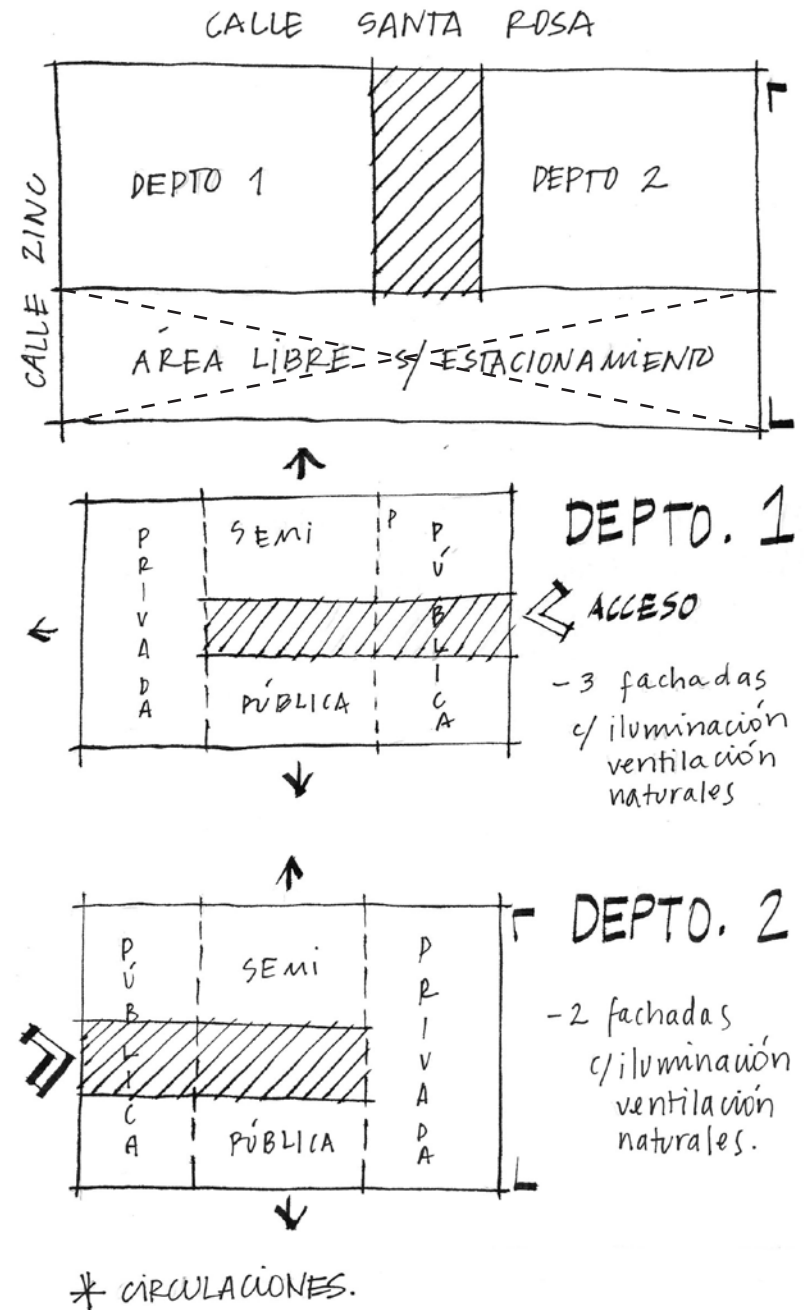 CALLE SANTA ROSA
CALLE ZINC
DEPTO 1
DEPTO 2
ÁREA LIBRE s/ ESTACIONAMIENTO
DEPTO. 1
PRIVADA
SEMI
PÚBLICA
P
PÚBLICA
ACCESO
- 3 fachadas
c/ iluminación
ventilación
naturales
DEPTO. 2
PÚBLICA
SEMI
PÚBLICA
PRIVADA
- 2 fachadas
c/iluminación
ventilación
naturales.
* CIRCULACIONES.